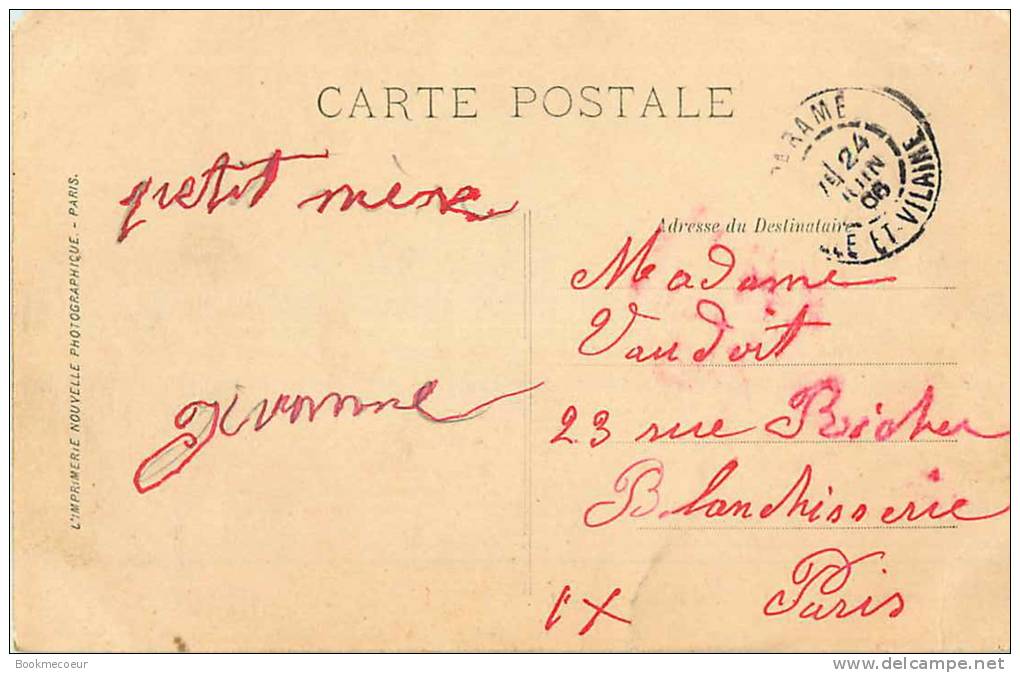 CARTE POSTALE
petit mère
Yvonne
L'IMPRIMERIE NOUVELLE PHOTOGRAPHIQUE. - PARIS.
RAMÉ
24
JUIN
06
ET-VILAINE
Adresse du Destinataire
Madame
Vaudoit
23 rue Richer
Blanchisserie
Paris
IX
Bookmecoeur
delcampe.net